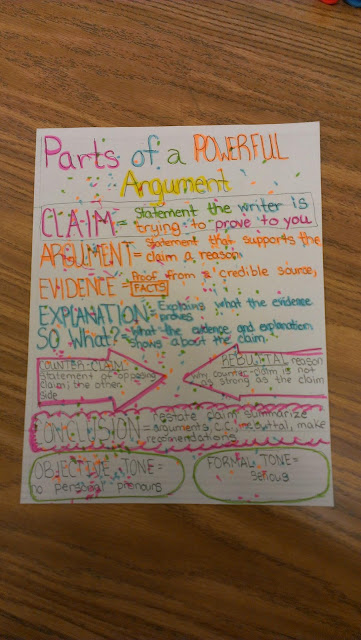 Parts of a POWERFUL
Argument
CLAIM = statement the writer is
trying to prove to you
ARGUMENT = statement that supports the
claim a reason
EVIDENCE = Proof from a credible source,
FACTS
EXPLANATION = Explains what the evidence
proves
SO What? = what the evidence and explanation
shows about the claim
COUNTER-CLAIM:
statement of opposing
claim; the other
side
REBUTTAL reason
why counter-claim is not
as strong as the claim
CONCLUSION = restate claim summarize
arguments, C.C, rebuttal, make
recomendations
OBJECTIVE TONE =
no personal pronouns
FORMAL TONE =
serious